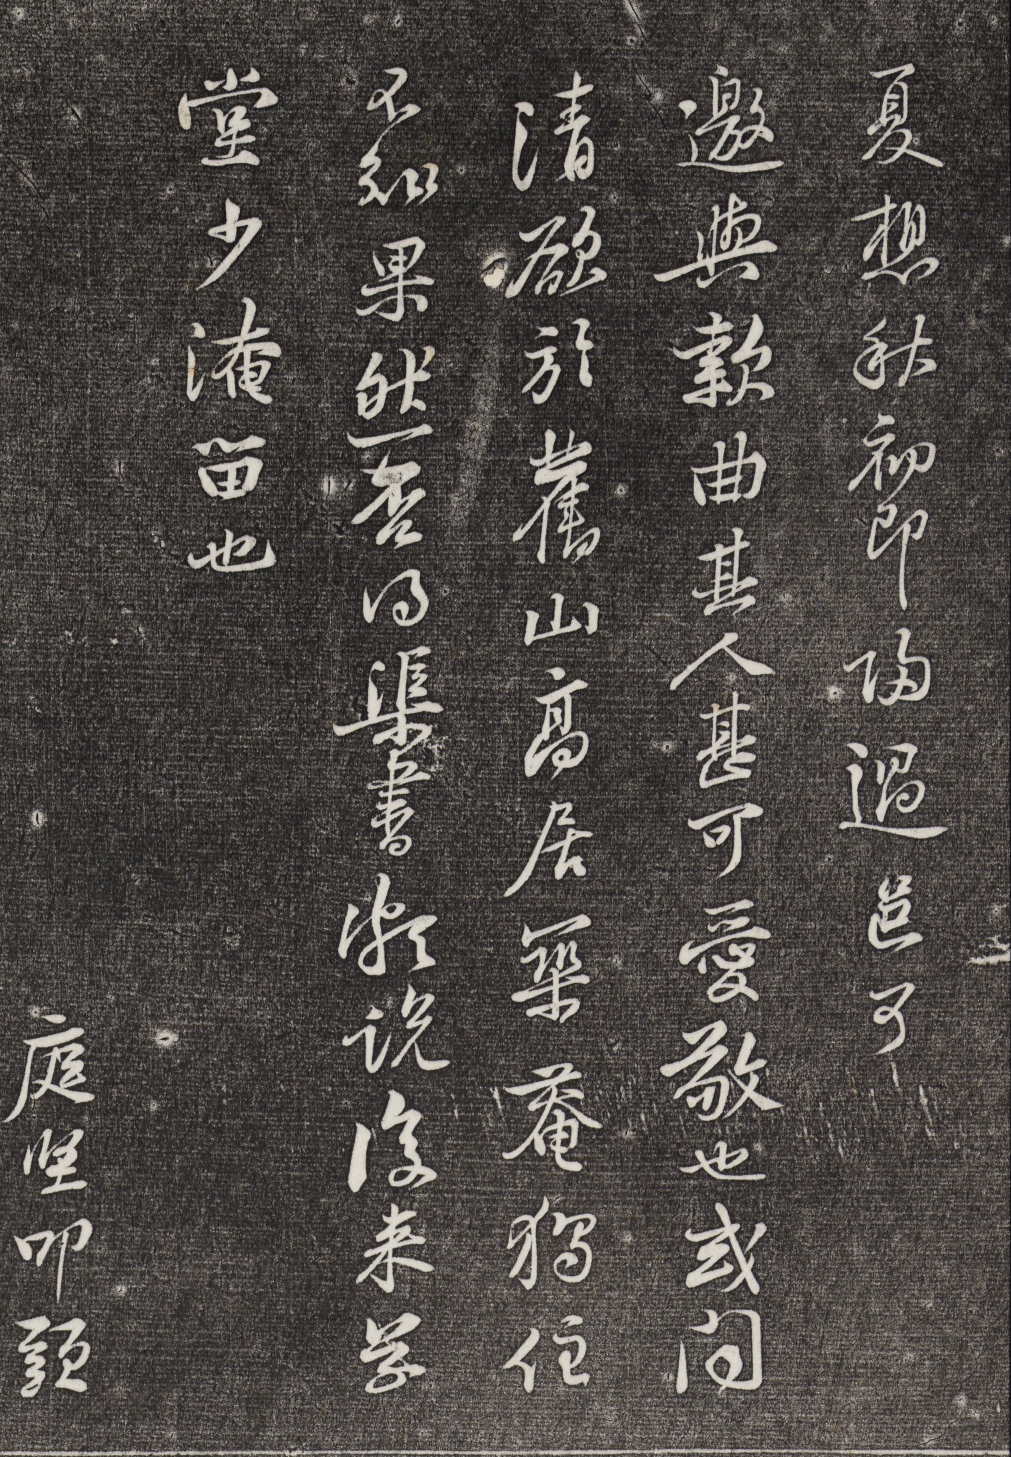 夏想秋初即歸過邑可
邀與款曲其人甚可愛敬也或聞
清欲於舊山高居築菴獨住
不知果然否得渠書凝說復來草
堂少淹留也
庭堅叩頭